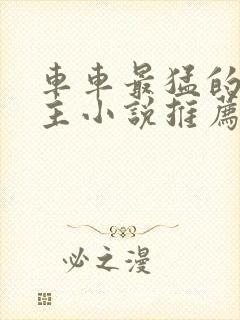 車車最猛的
主小說推薦
必之漫